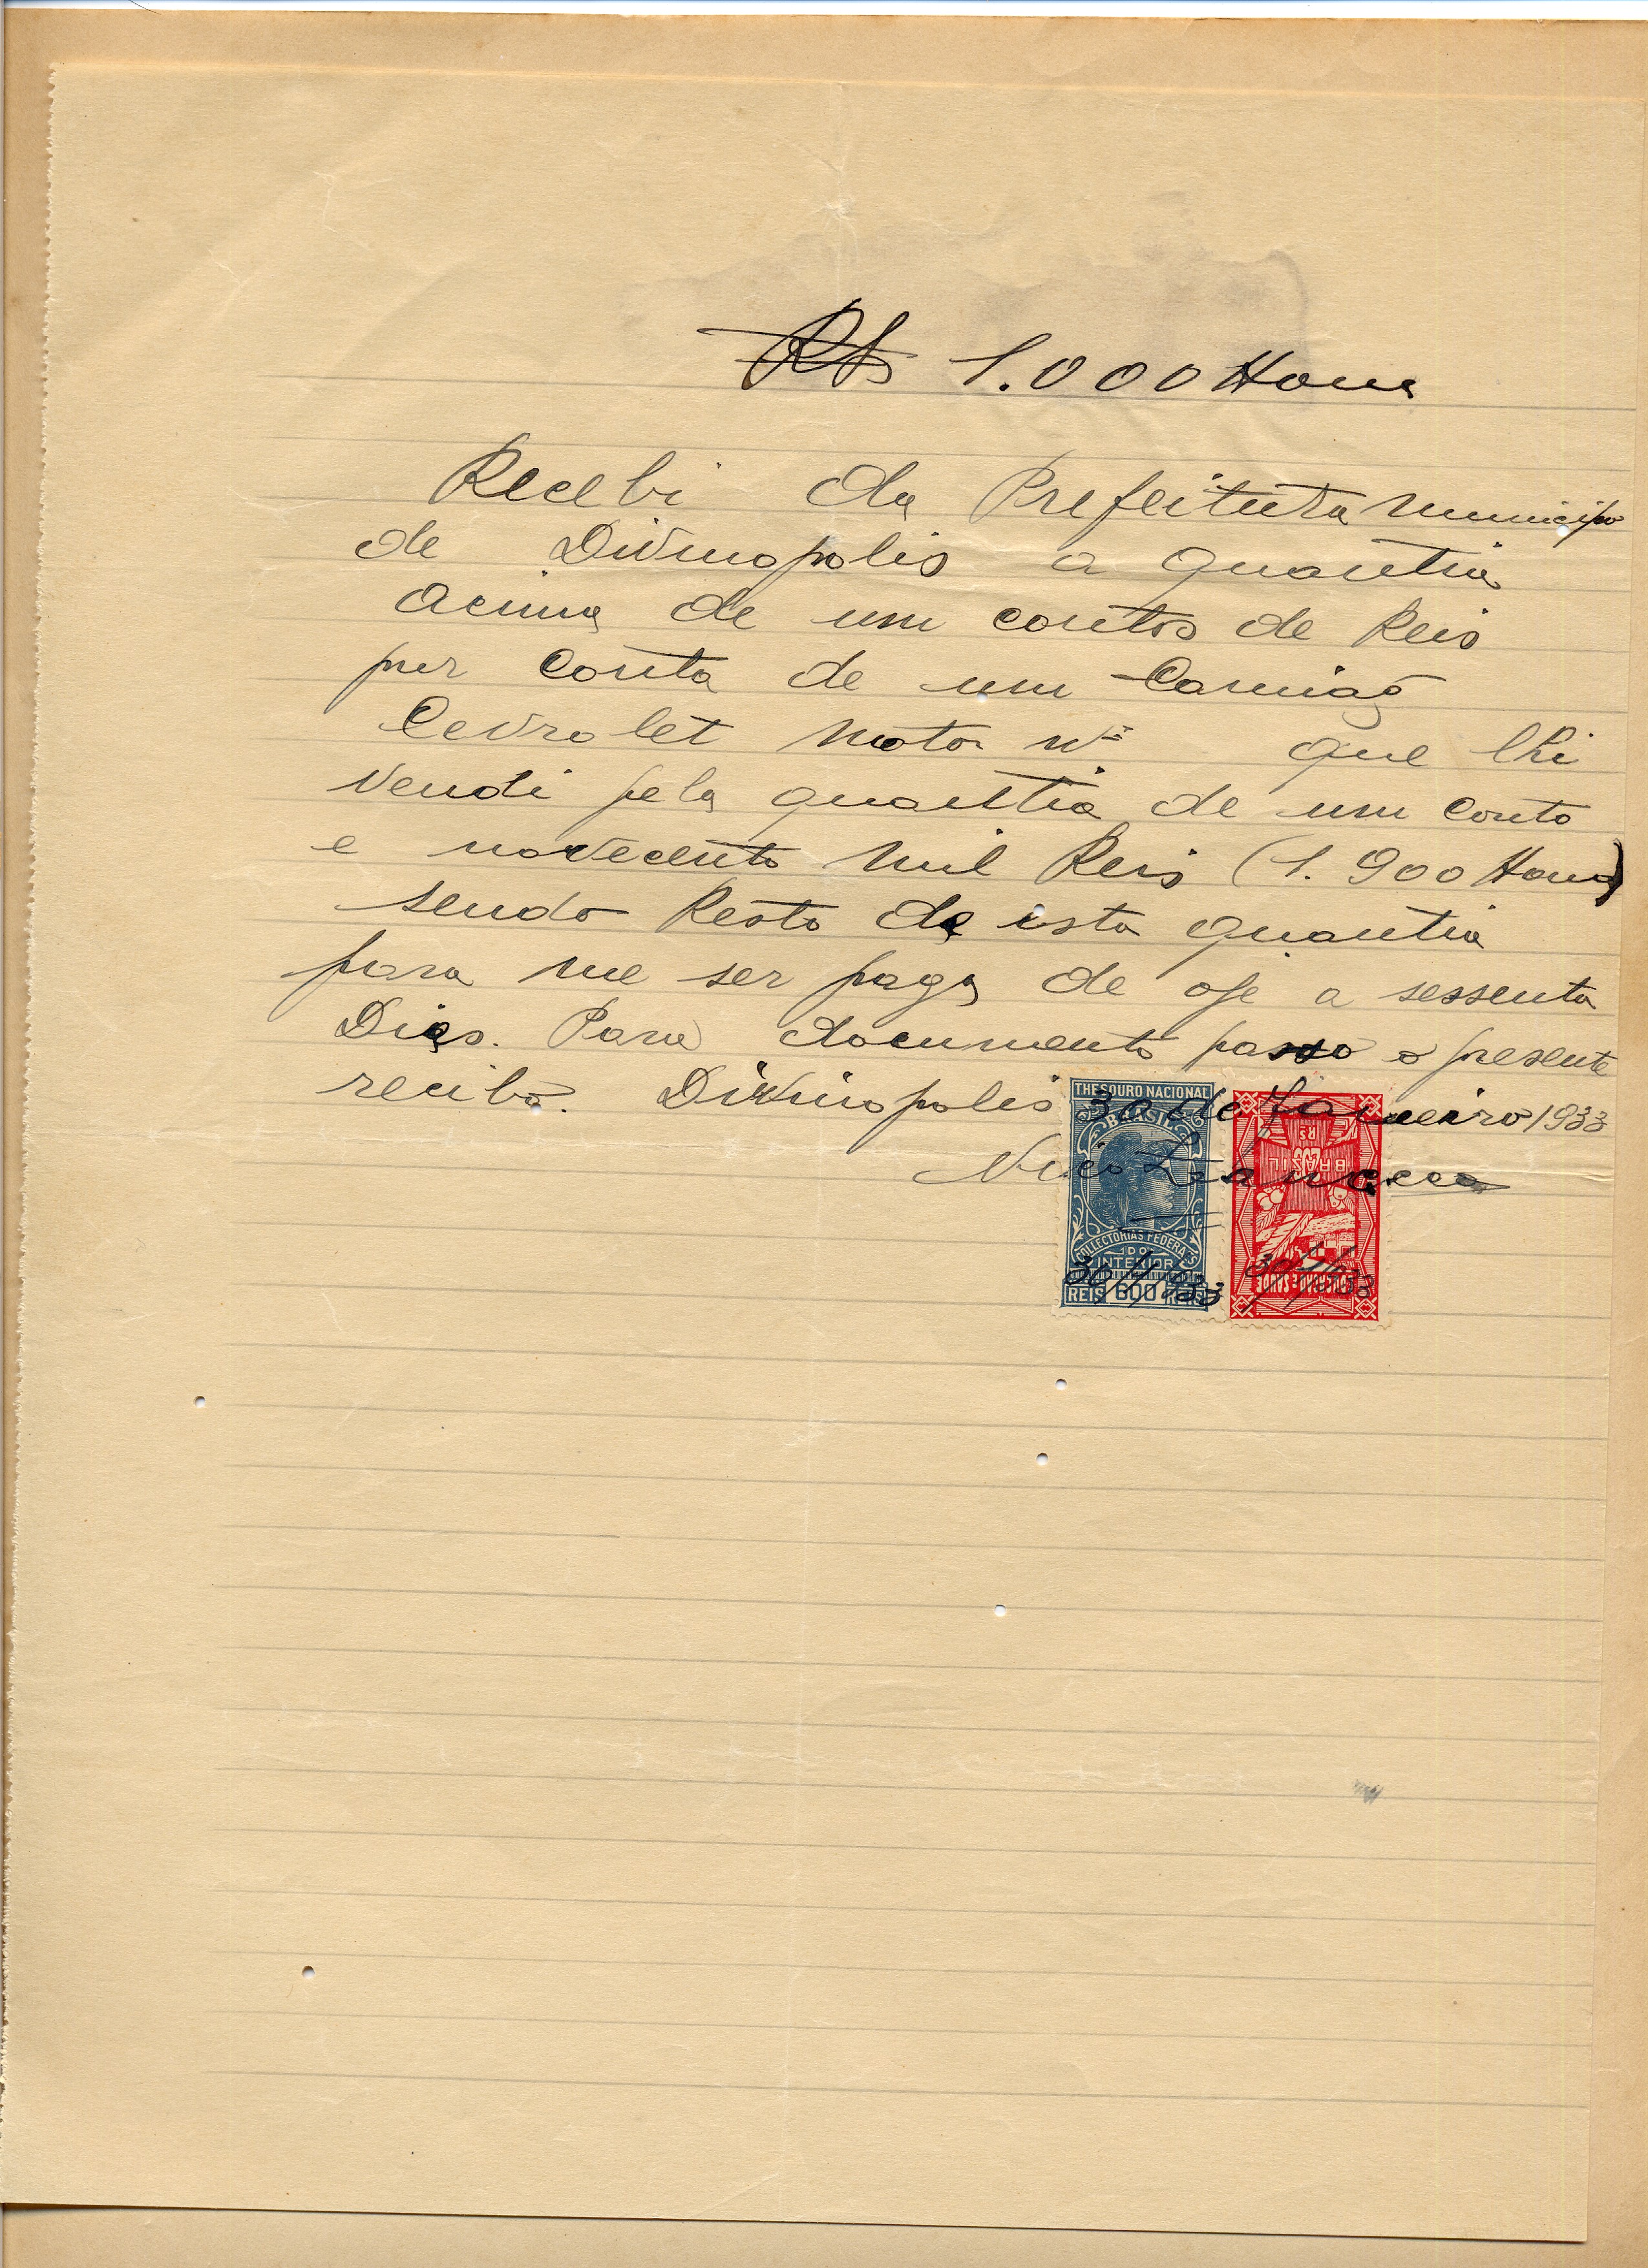 Rs 1.000
Recebi da Prefeitura Municipo
de Divinopolis a quantia
acima de um contos de Reis
por conta de um Camião
Cevrolet motor nº que lhi
vendi pela quantia de um Conto
e novecento mil Reis (1.900
sendo Resto de ista quantia
para me ser paga de oje a sessenta
Dias. Para documento passo o presente
recibo. Divinopolis 30 de Janeiro 1933
THESOURO NACIONAL
BRASIL
COLLECTORIAS FEDERAES
DO
INTERIOR
REIS 600 REIS
30/1/933
RS
200
BRAZIL
EDUCAÇÃO E SAUDE
30/1/933